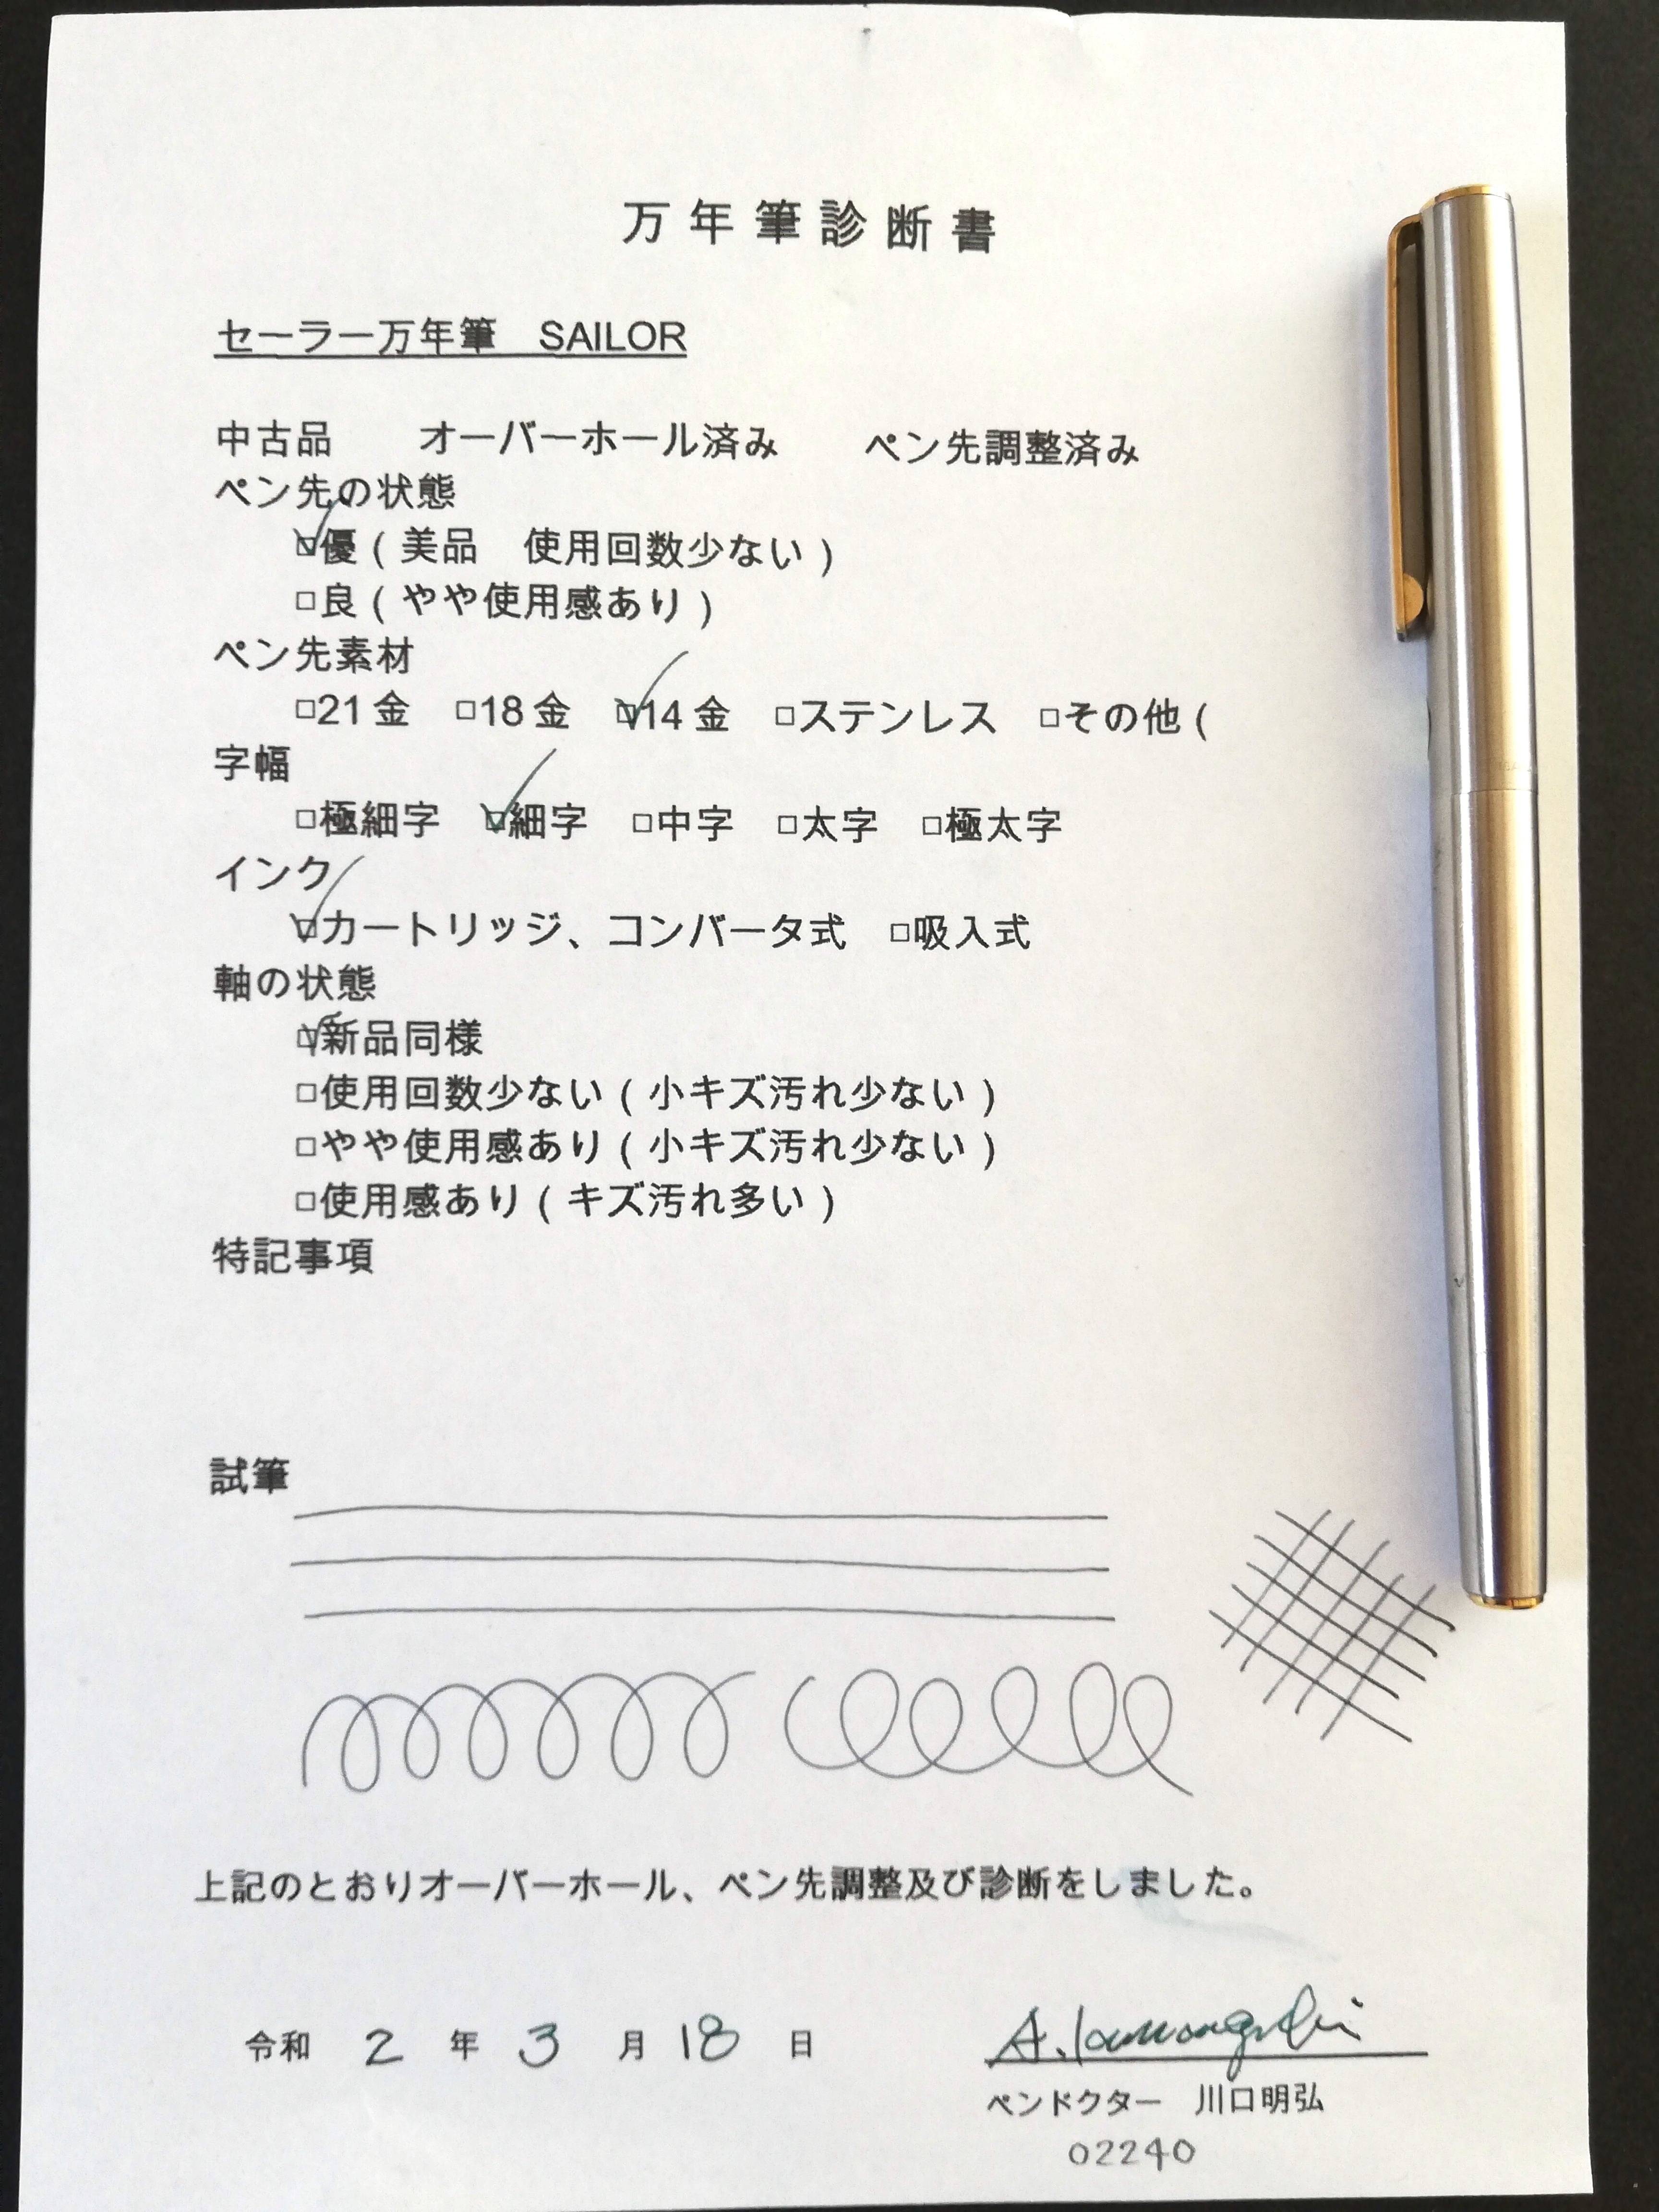 万年筆診断書
セーラー万年筆　SAILOR
中古品　オーバーホール済み　ペン先調整済み
ペン先の状態
☑優（美品　使用回数少ない）
□良（やや使用感あり）
ペン先素材
□21金　□18金　☑14金　□ステンレス　□その他（
字幅
□極細字　☑細字　□中字　□太字　□極太字
インク
☑カートリッジ、コンバータ式　□吸入式
軸の状態
☑新品同様
□使用回数少ない（小キズ汚れ少ない）
□やや使用感あり（小キズ汚れ少ない）
□使用感あり（キズ汚れ多い）
特記事項
試筆
上記のとおりオーバーホール、ペン先調整及び診断をしました。
令和　2　年　3　月　18　日
ペンドクター　川口明弘
02240